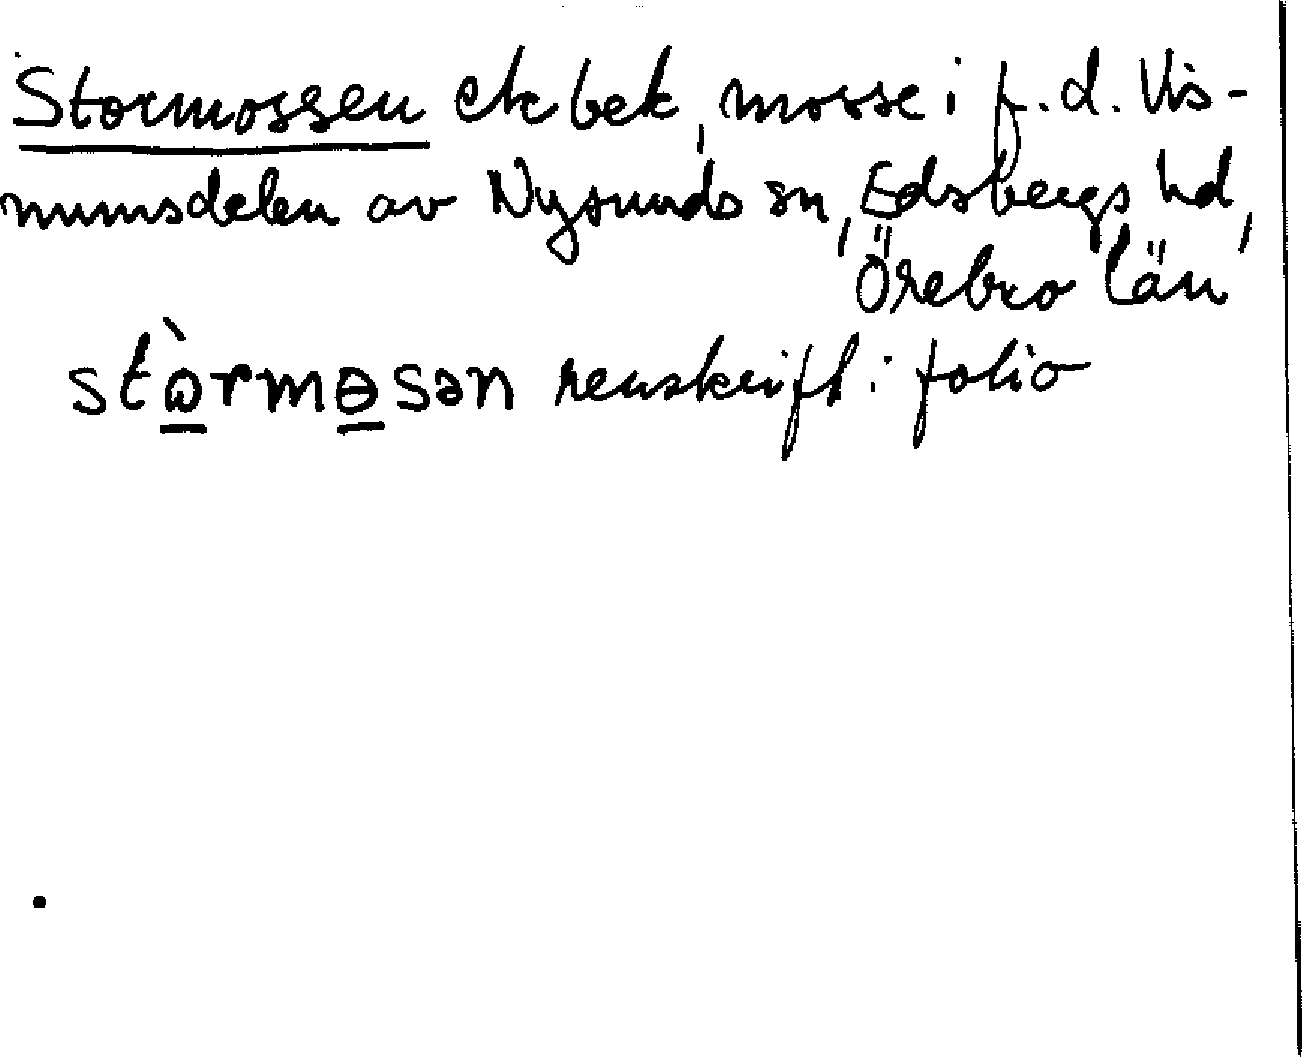 Stormossen ek bek, mosse i f. d. Vis-
numsdelen av Nysunds sn, Edsbergs hd,
Örebro län
stὼrmɵsən renskrift i folio